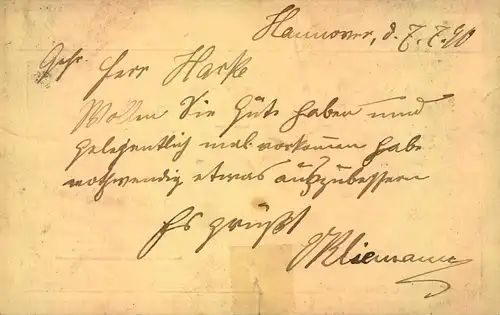 Hannover, d. 7.7.90
Gehr. Herr Harke
Wollen Sie Güte haben und
gelegentlich mal vorkommen habe
nothwendig etwas auszubessern
Es grüßt
Kliemann